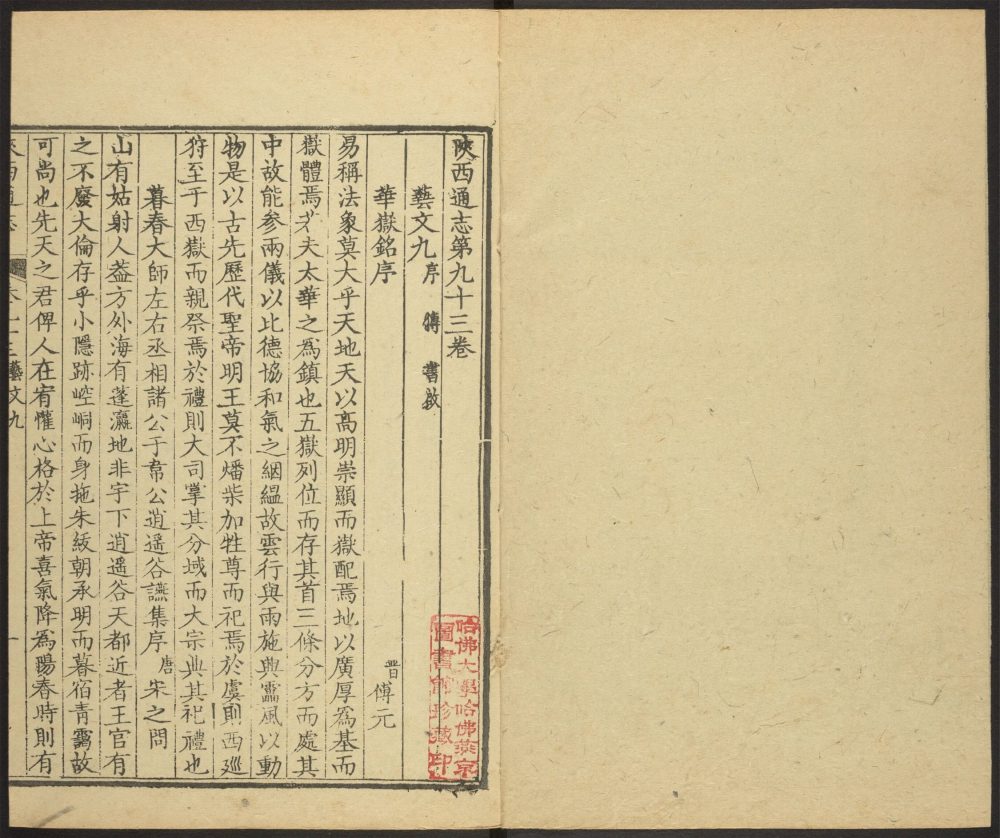 陝西通志第九十三卷
藝文九 序 傳 書啟
華嶽銘序 晋 傅元
易稱法象莫大乎天地天以高明崇顯而嶽配焉地以廣厚為基而
嶽體焉若夫太華之為鎮也五嶽列位而存其首三條分方而處其
中故能參兩儀以比德協和氣之絪縕故雲行與雨施興靁風以動
物是以古先歷代聖帝明王莫不燔柴加牲尊而祀焉於虞則西廵
狩至于西嶽而親祭焉於禮則大司掌其分域而大宗典其祀禮也
暮春大師左右丞相諸公于韋公逍遥谷讌集序 唐 宋之問
山有姑射人葢方外海有蓬瀛地非宇下逍遥谷天都近者王官有
之不廢大倫存乎小隱跡崆峒而身拖朱紱朝承明而暮宿青靄故
可尚也先天之君俾人在宥懽心格於上帝喜氣降為陽春時則有
陝西通志 藝文九 一
哈佛大學哈佛燕京
圖書館珍藏印